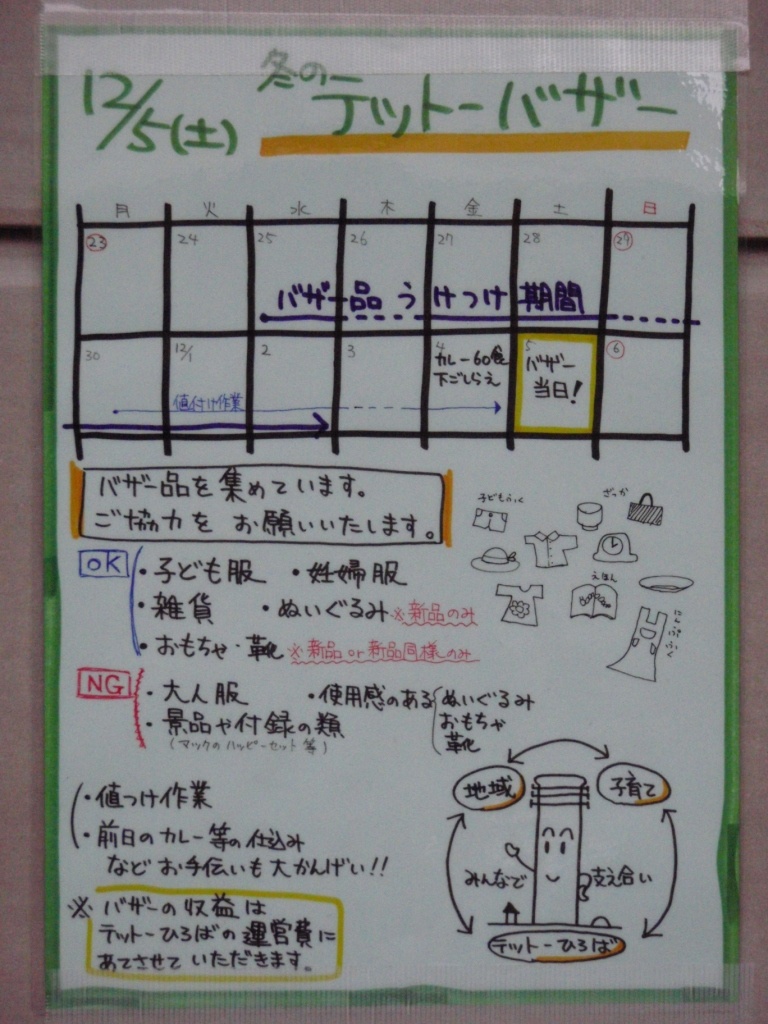 12/5(土) 冬のデットーバザー
月 火 水 木 金 土 日
23 24 25 26 27 28 29
バザー品うけつけ期間
30 12/1 2 3 4 5 6
カレー60食
下ごしらえ
バザー
当日!
値付け作業
バザー品を集めています。
ご協力をお願いいたします。
子どもふく ざっか
えほん
にんぷふく
OK ・子ども服 ・妊婦服
・雑貨 ・ぬいぐるみ※新品のみ
・おもちゃ・靴※新品or新品同様のみ
NG ・大人服 ・使用感のある ぬいぐるみ
おもちゃ
靴
・景品や付録の類
(マックのハッピーセット等)
・値つけ作業
・前日のカレー等の仕込み
などお手伝いも大かんげい!!
※バザーの収益は
テットーひろばの運営費に
あてさせていただきます。
地域 子育て
みんなで 支え合い
テットーひろば